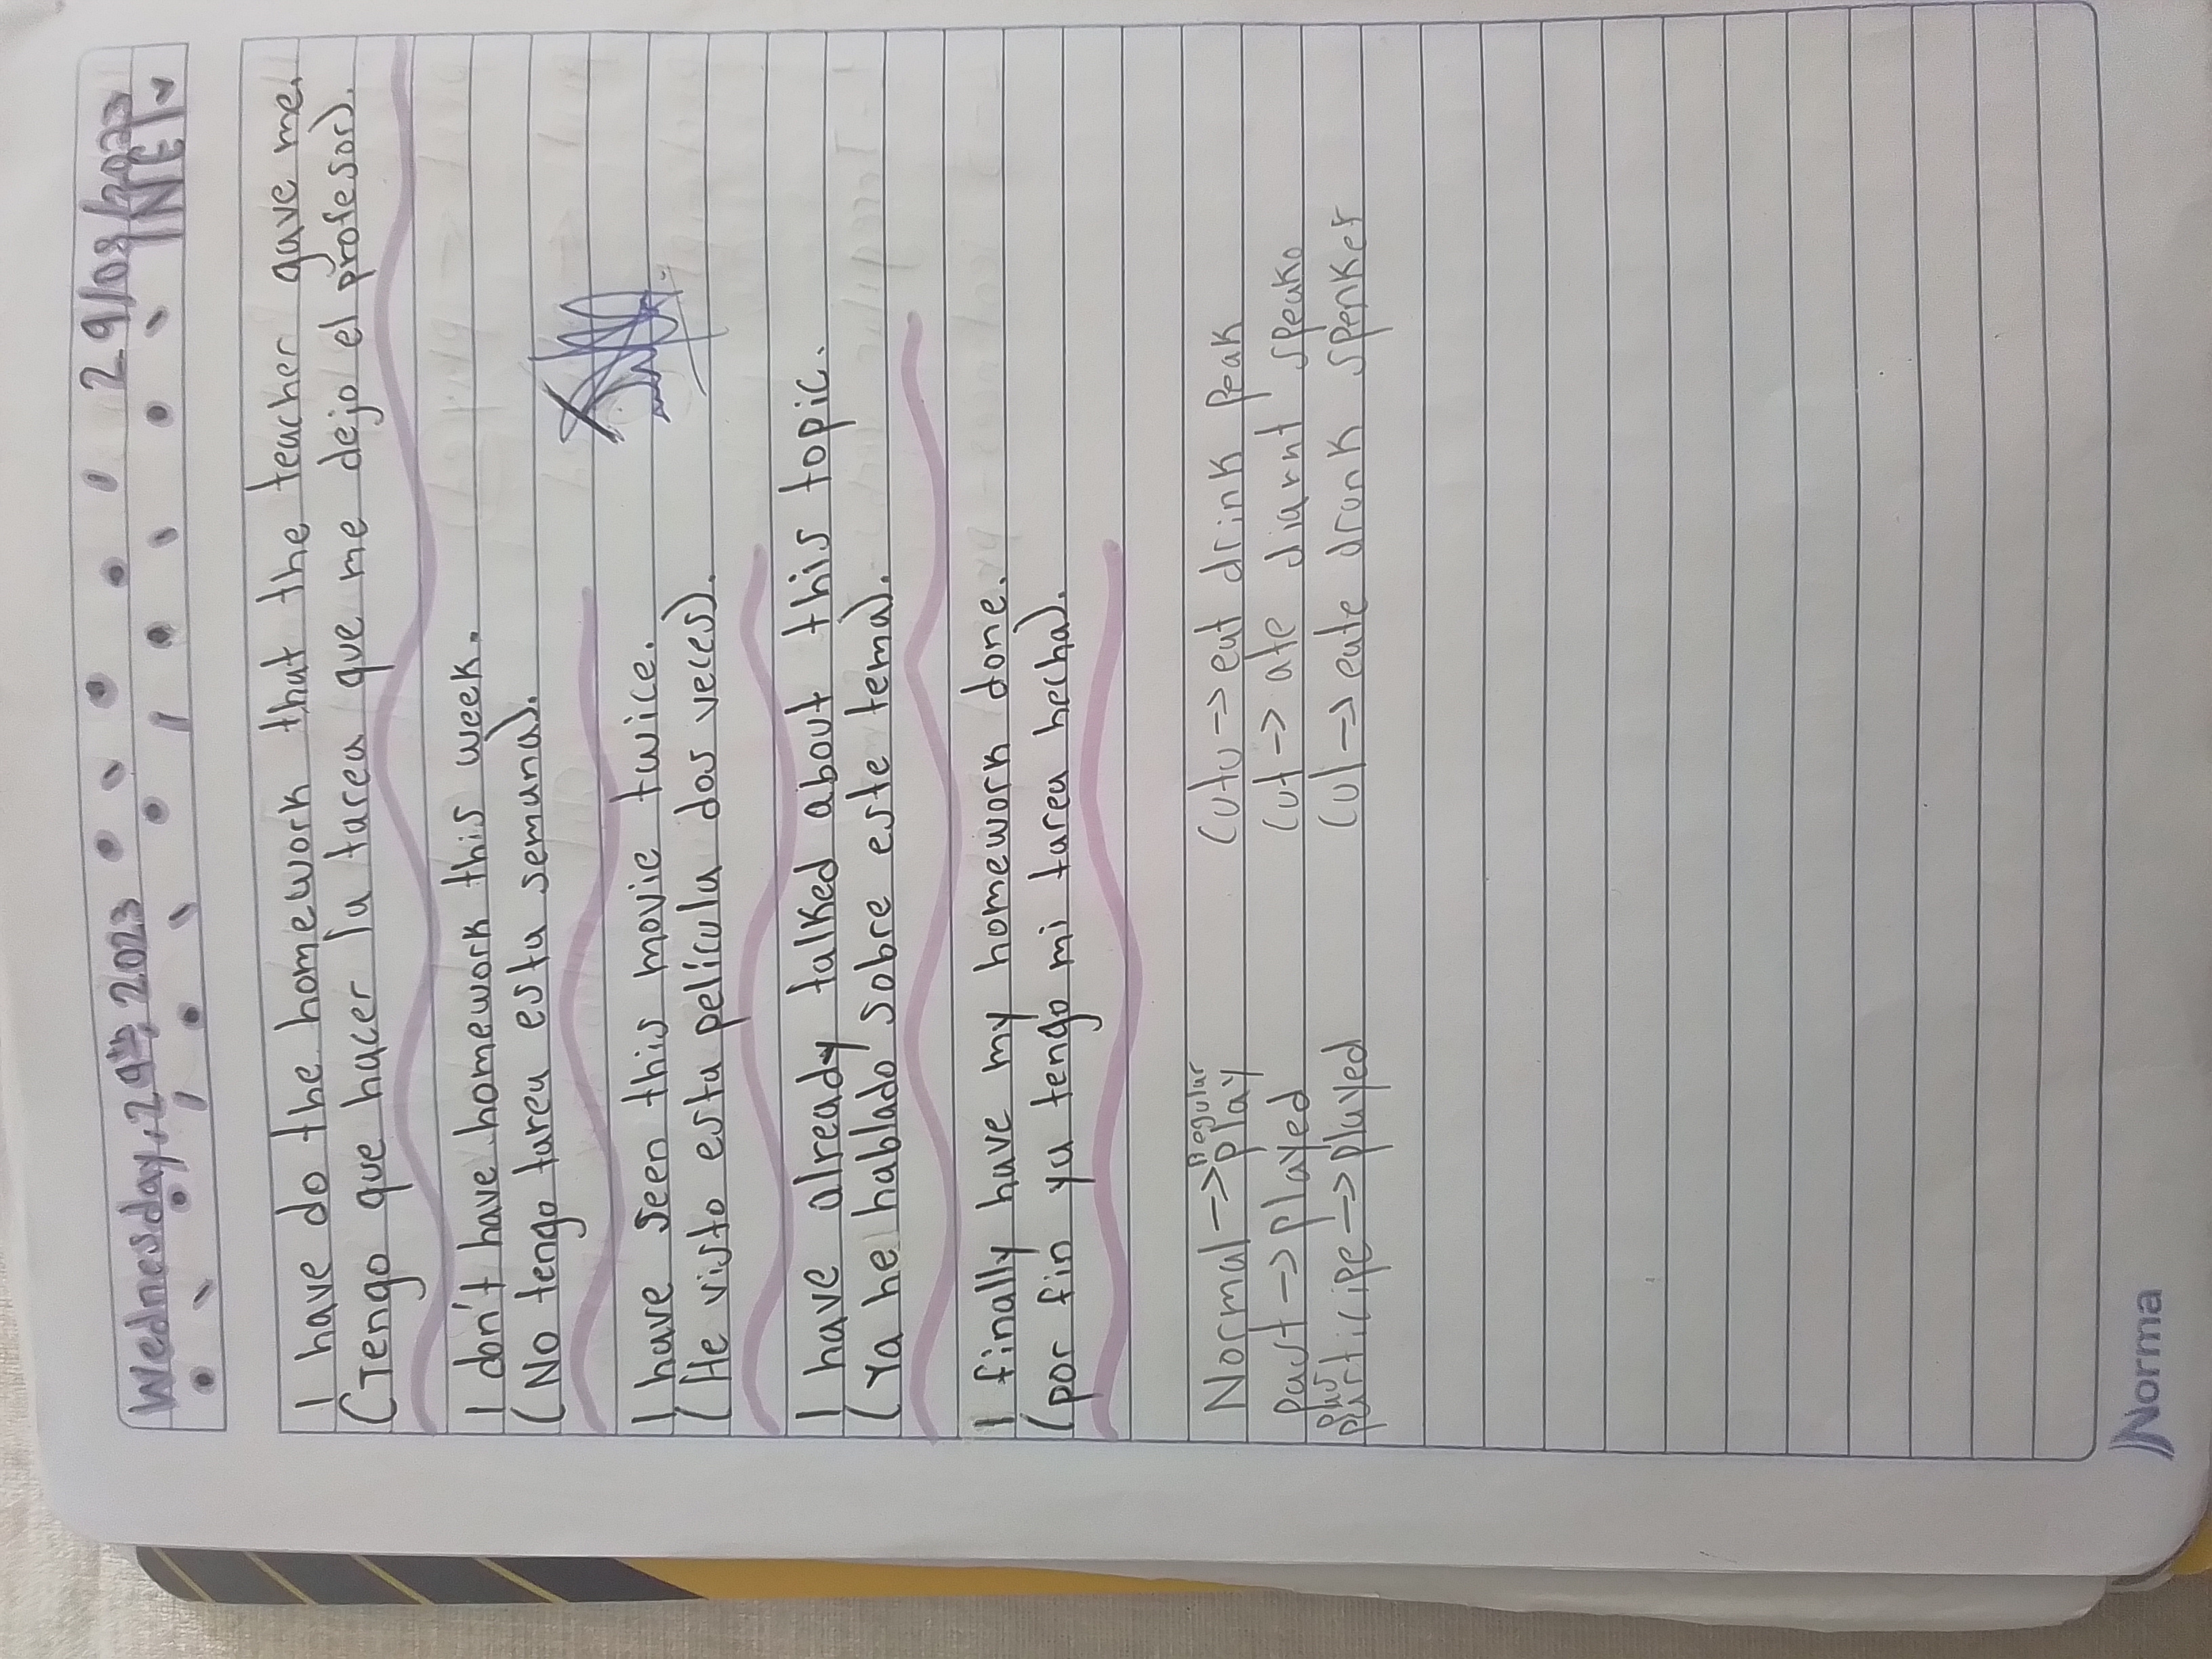 Wednesday, 29th, 2023 29/03/2023
I have do the homework that the teacher gave me.
(Tengo que hacer la tarea que me dejo el profesor).
I don't have homework this week.
(No tengo tarea esta semana).
I have seen this movie twice.
(He visto esta película dos veces).
I have already talked about this topic.
(Ya he hablado sobre este tema).
I finally have my homework done.
(por fin ya tengo mi tarea hecha).
Regular
Normal -> play cut -> eat drink Peak
Past -> played cut -> ate speako
participe -> played cut -> eate drunk
Norma